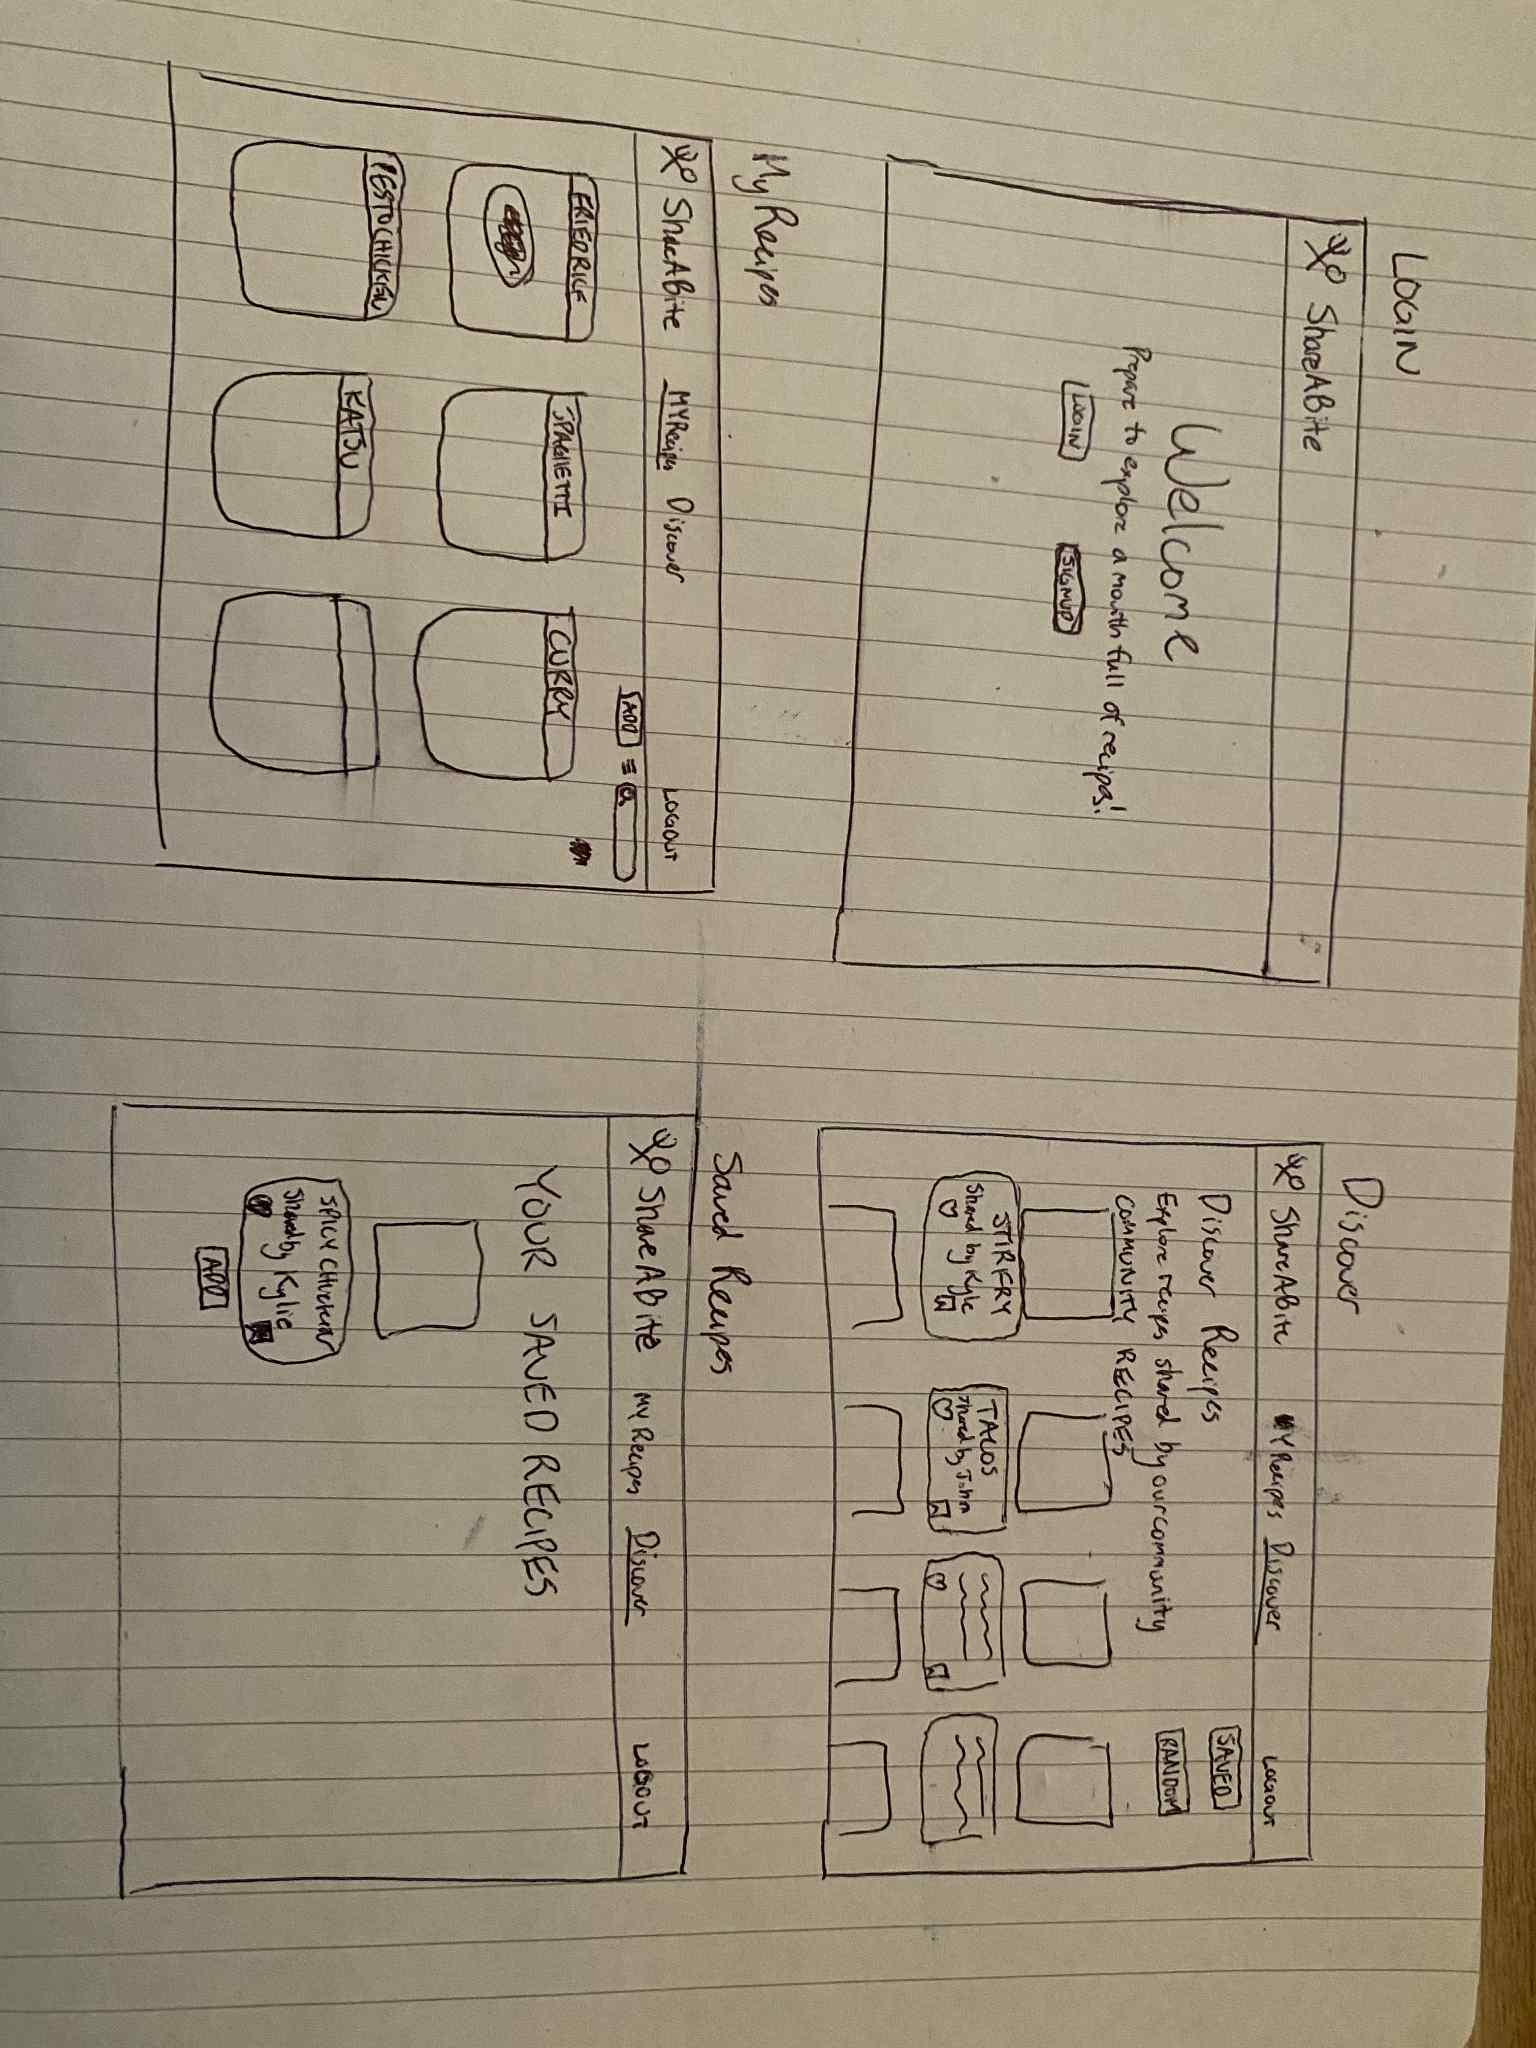 LOGIN
ShareABite
Welcome
Prepare to explore a mouth full of recipes!
LOGIN SIGNUP
Discover
ShareABite MY Recipes Discover LOGOUT
SAVED
Discover Recipes
RANDOM
Explore recipes shared by our community
COMMUNITY RECIPES
STIRFRY
Shared by Kyle
TACOS
Shared by John
My Recipes
ShareABite MY Recipes Discover LOGOUT
ADD
FRIED RICE SPAGHETTI CURRY
PESTO CHICKEN KATSU
Saved Recipes
ShareABite MY Recipes Discover LOGOUT
YOUR SAVED RECIPES
SPICY CHICKEN
Shared by Kylie
ADD